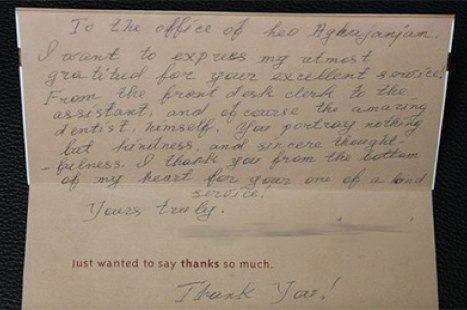 To the office of Leo Aghajanian.
I want to express my utmost
gratitud for your excellent service!
From the front desk clerk to the
assistant, and of course the amazing
dentist, himself. You portray nothing
but kindness, and sincere thought-
-fulness. I thank you from the bottom
of my heart for your one of a kind
service!
Yours truly.
Just wanted to say thanks so much.
Thank You!